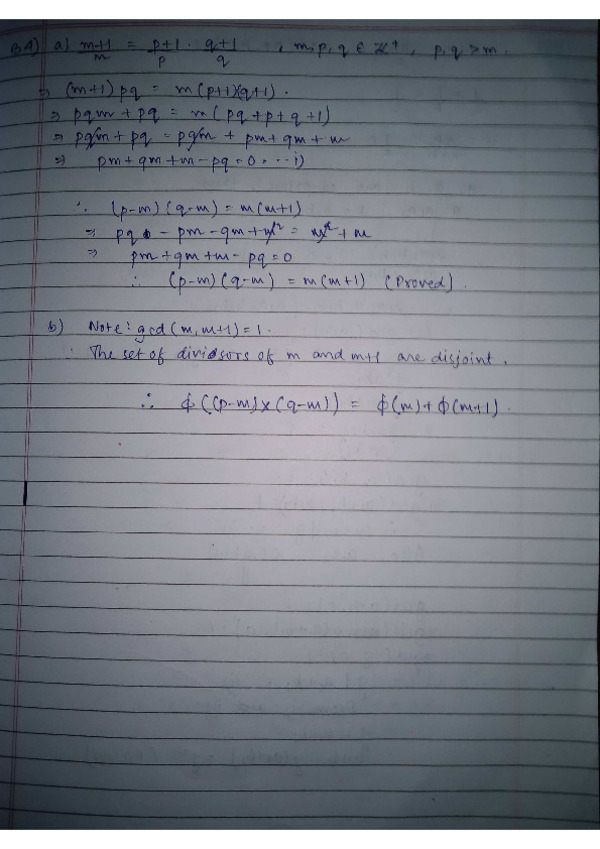 B4) a) m+1/m = p+1/p · q+1/q , m,p,q ∈ Z⁺, p,q > m.
⇒ (m+1) pq = m(p+1)(q+1).
⇒ pqm + pq = m(pq+p+q+1)
⇒ pqm + pq = pqm + pm+qm+m
⇒ pm+qm+m-pq=0. ...i)
∴ (p-m)(q-m) = m(m+1)
⇒ pq - pm - qm + m² = m² + m
⇒ pm+qm+m-pq=0
∴ (p-m)(q-m) = m(m+1) (Proved).
b) Note: gcd(m,m+1)=1.
∴ The set of divisors of m and m+1 are disjoint.
∴ ϕ((p-m)×(q-m)) = ϕ(m)+ϕ(m+1).